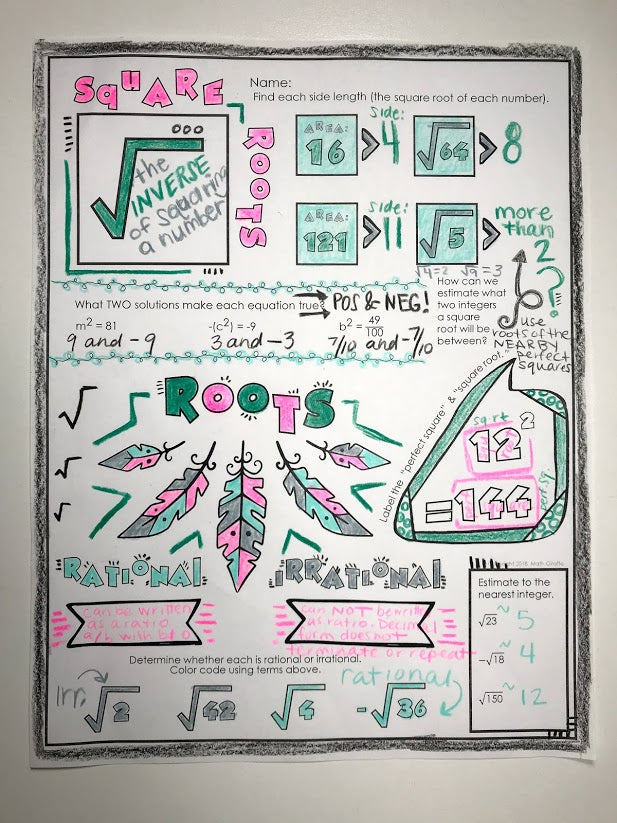 SQUARE
ROOTS
√
the
INVERSE
of squaring
a number
Name:
Find each side length (the square root of each number).
AREA:
16
> side:
4
√64 > 8
AREA:
121
> side:
11
√5 > more
than
2
√4=2 √9=3
?
How can we
estimate what
two integers
a square
root will be
between?
use
roots of the
NEARBY
perfect
squares
What TWO solutions make each equation true?
POS & NEG!
m² = 81
9 and -9
-(c²) = -9
3 and -3
b² = 49/100
7/10 and -7/10
ROOTS
√
√
√
Label the "perfect square" & "square root."
sq.rt
12²
=144
perf.sq.
RATIONAL
can be written
as a ratio,
a/b with b≠0
IRRATIONAL
can NOT be written
as ratio. Decimal
form does not
terminate or repeat
Determine whether each is rational or irrational.
Color code using terms above.
irr.
rational
√2 √42 √4 -√36
2018, Math Giraffe
Estimate to the
nearest integer.
√23 ~ 5
-√18 ~ 4
√150 ~ 12